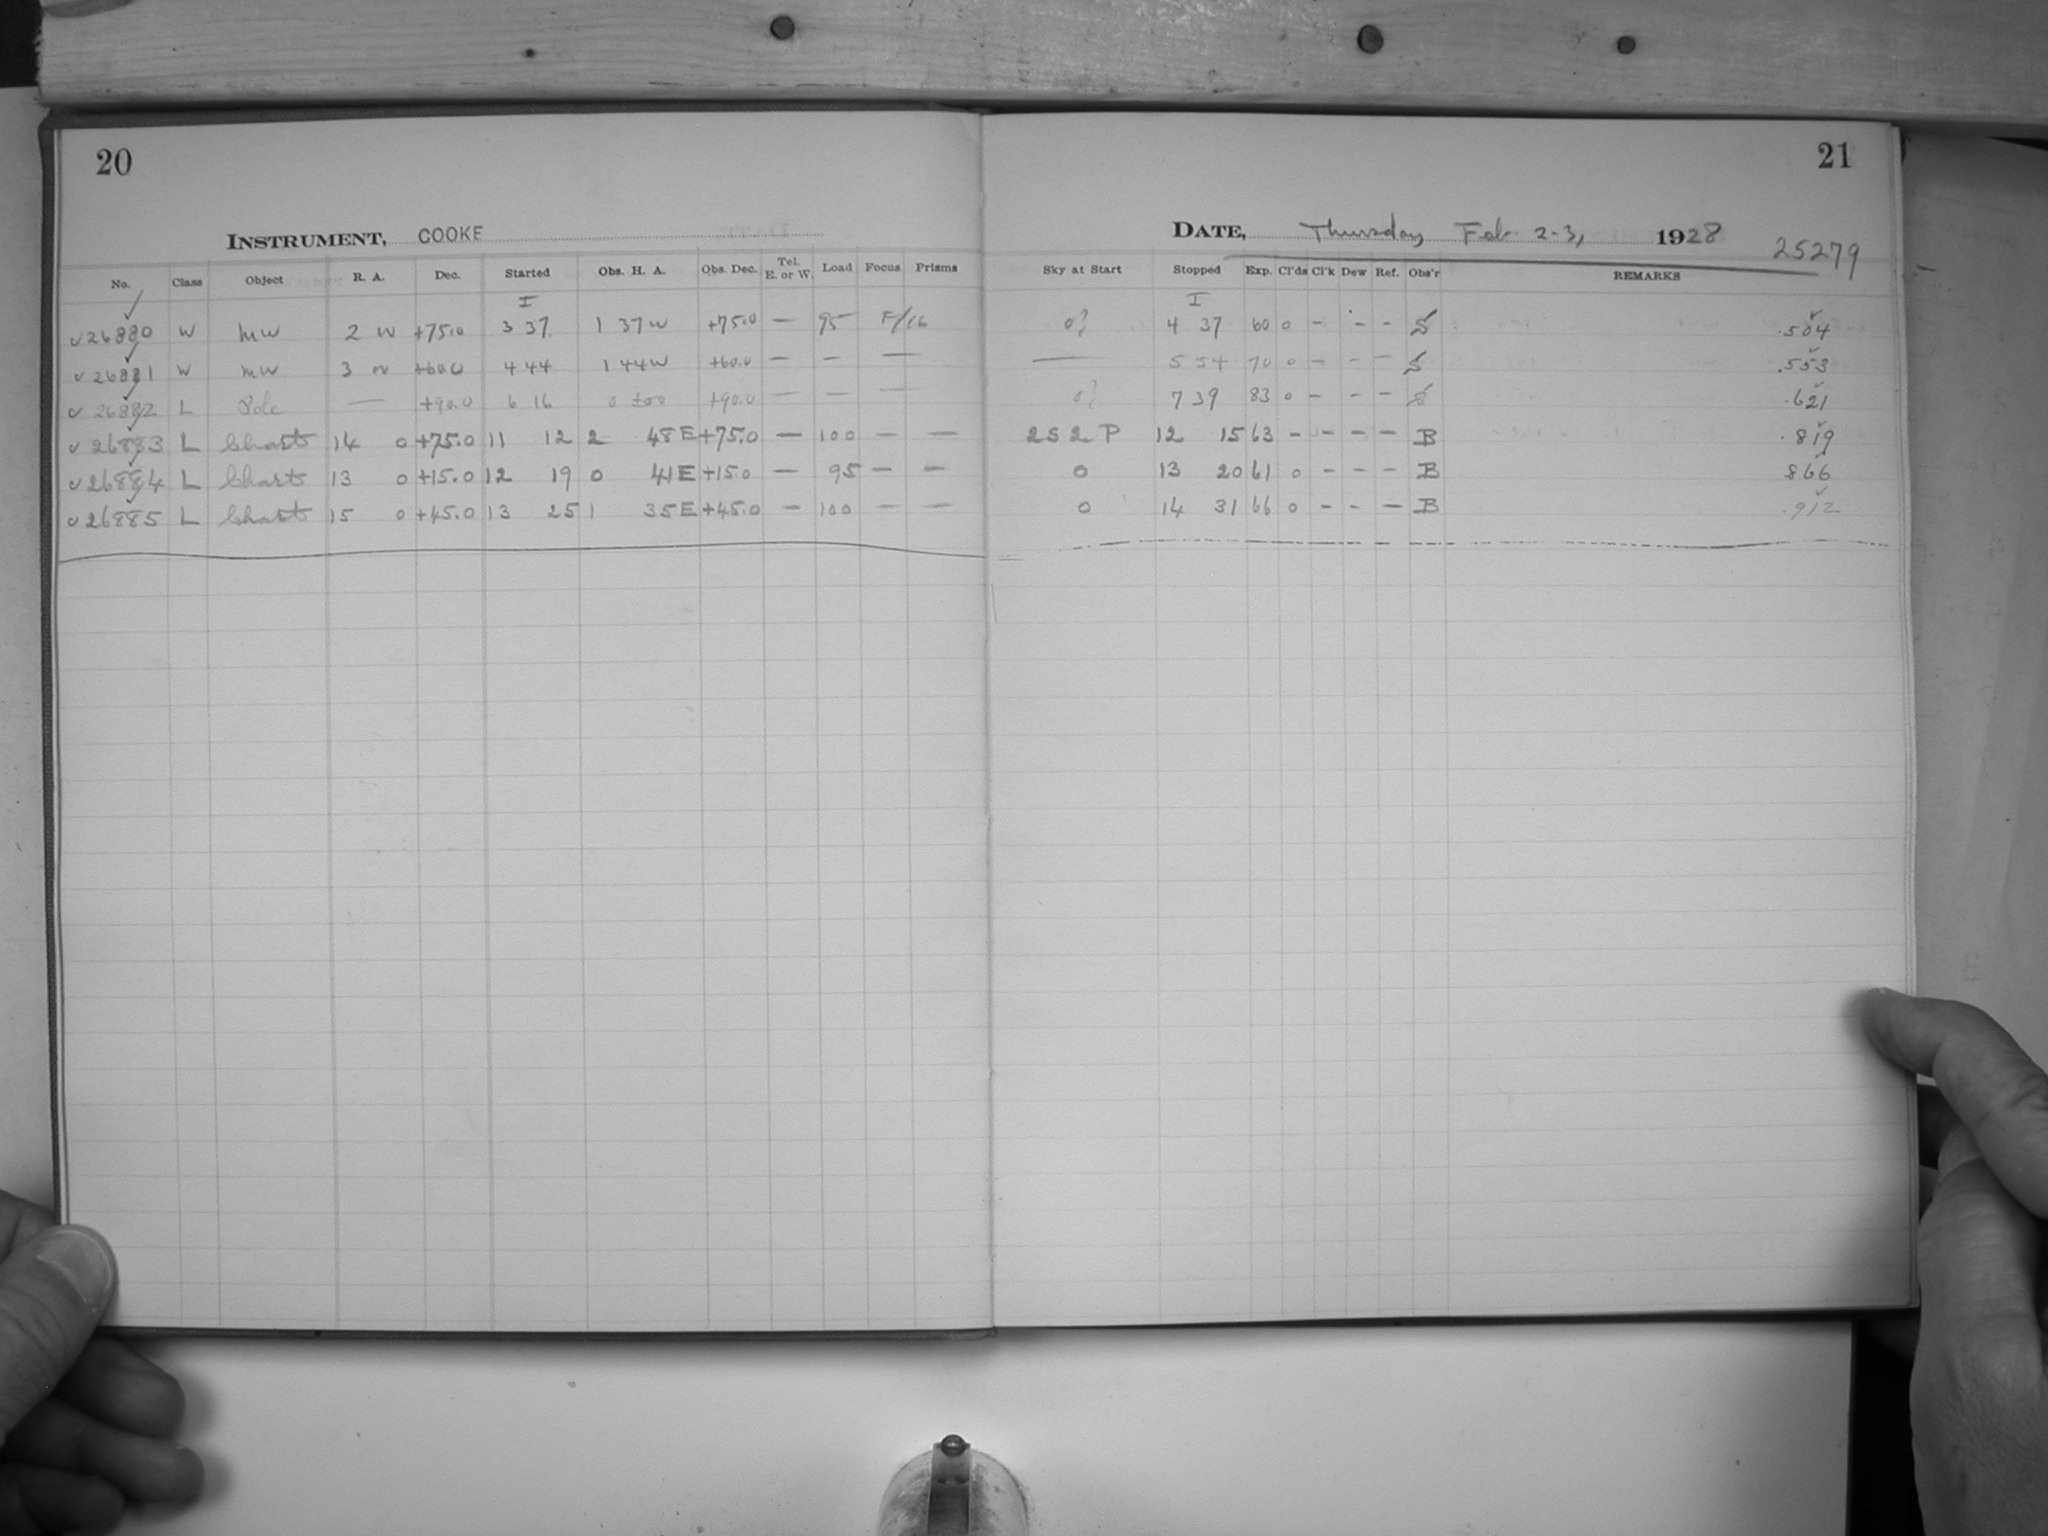 20
INSTRUMENT, COOKE
No. Class Object R. A. Dec. Started Obs. H. A. Obs. Dec. Tel. E. or W. Load Focus Prisms
I
✓26880 W MW 2 W +75.0 3 37 1 37 W +75.0 — 95 F/16
✓26881 W MW 3 W +60.0 4 44 1 44 W +60.0 — — —
✓26882 L Pole — +90.0 6 16 0 ±00 +90.0 — — —
✓26883 L Charts 14 0 +75.0 11 12 2 48 E +75.0 — 100 — —
✓26884 L Charts 13 0 +15.0 12 19 0 41 E +15.0 — 95 — —
✓26885 L Charts 15 0 +45.0 13 25 1 35 E +45.0 — 100 — —
21
DATE, Thursday Feb. 2-3, 1928
25279
Sky at Start Stopped Exp. Cl'ds Cl'k Dew Ref. Obs'r REMARKS
I
0? 4 37 60 0 - - - S .504
— 5 54 70 0 - - - S .553
0? 7 39 83 0 - - - S .621
2 S 2 P 12 15 63 - - - - B .819
0 13 20 61 0 - - - B 866
0 14 31 66 0 - - - B .912